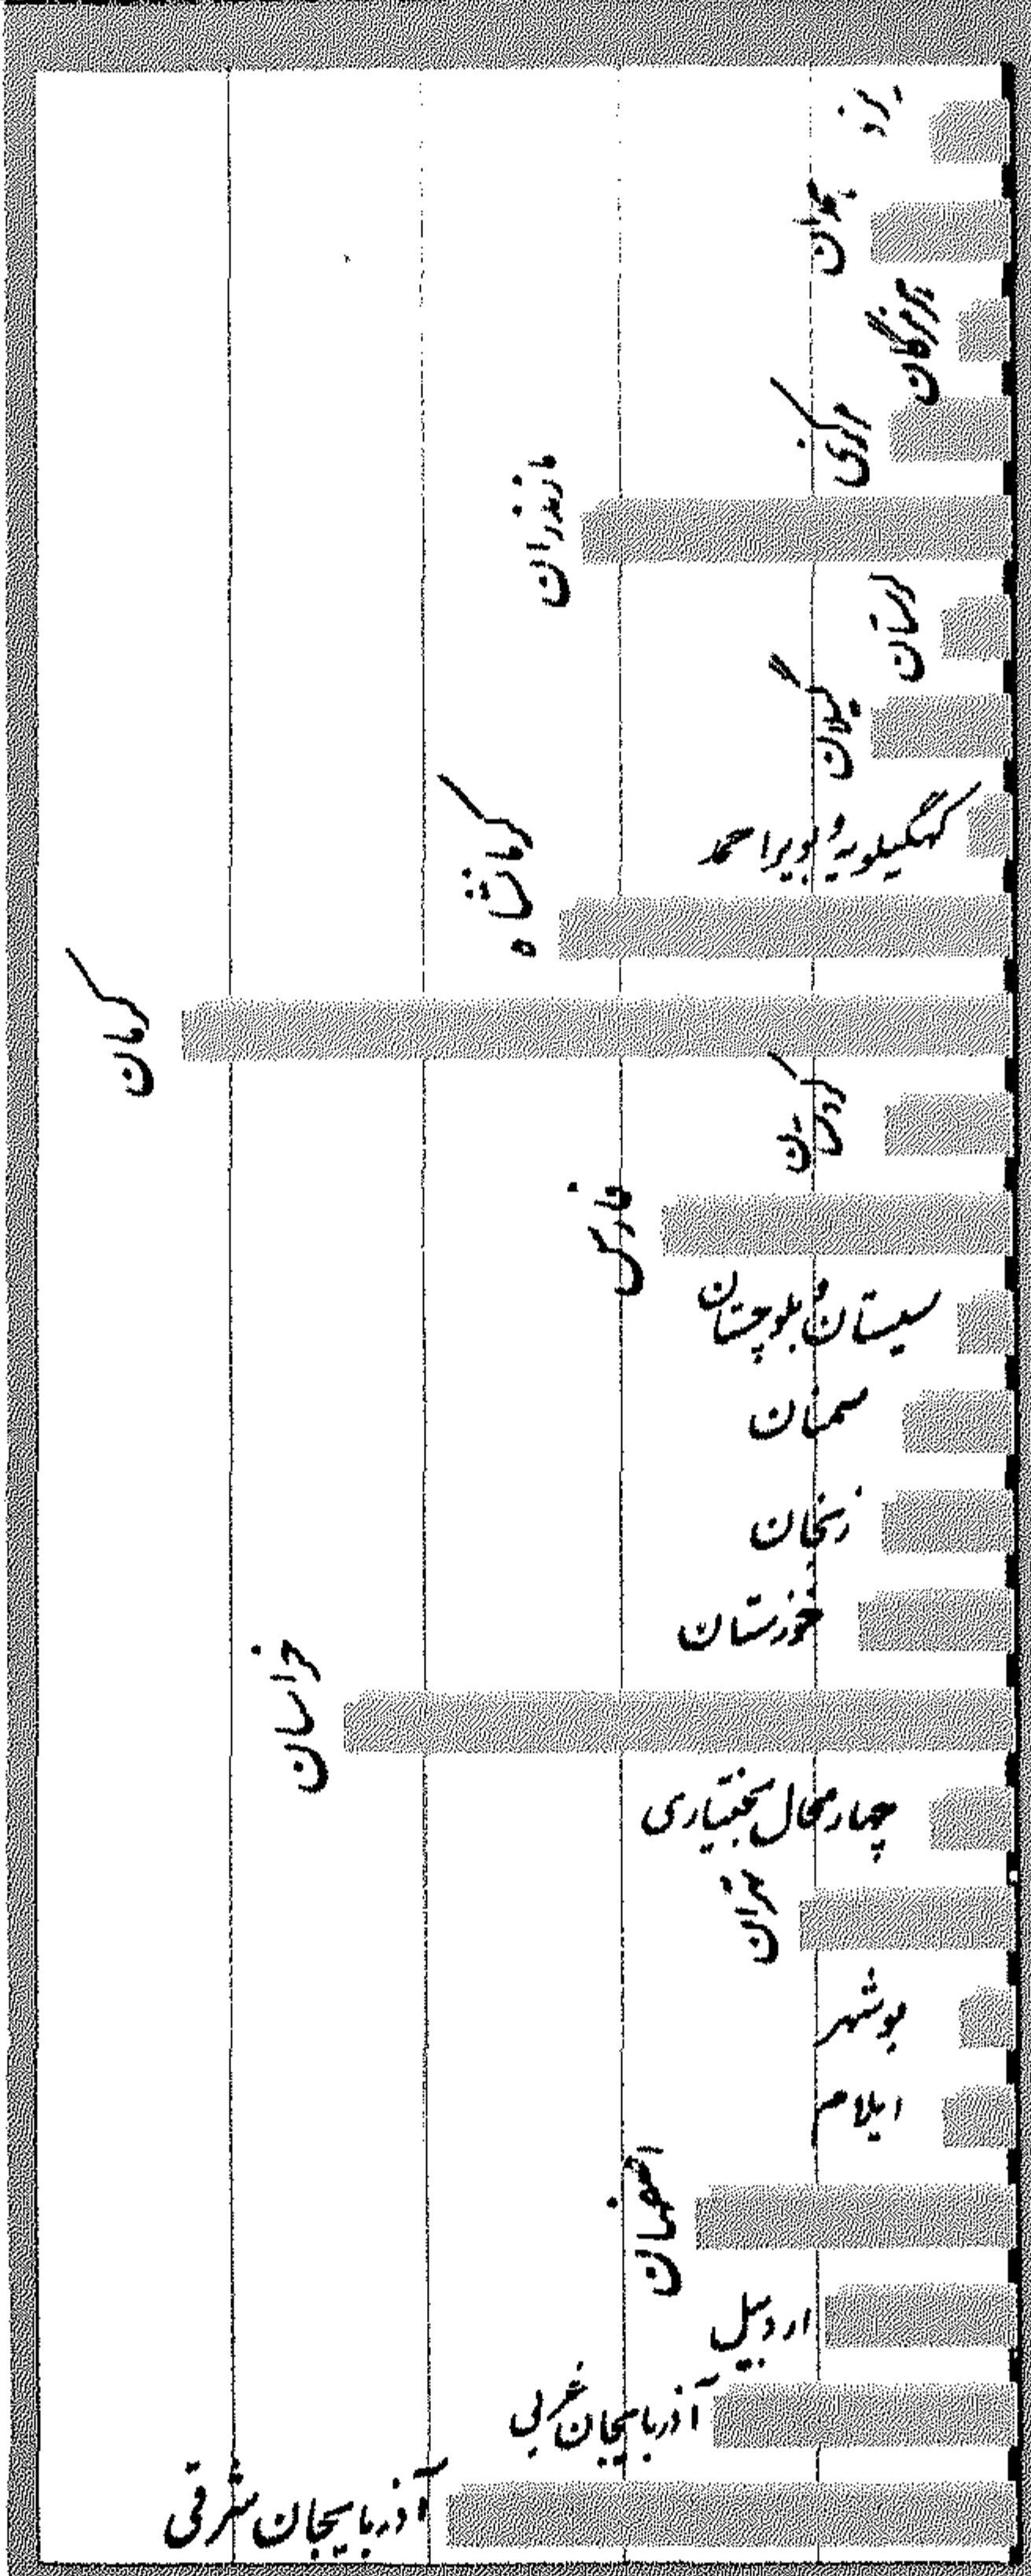 یزد
همدان
هرمزگان
مرکزی
مازندران
لرستان
گیلان
کهگیلویه و بویراحمد
کرمانشاه
کرمان
کردستان
فارس
سیستان و بلوچستان
سمنان
زنجان
خوزستان
خراسان
چهارمحال بختیاری
تهران
بوشهر
ایلام
اصفهان
اردبیل
آذربایجان غربی
آذربایجان شرقی